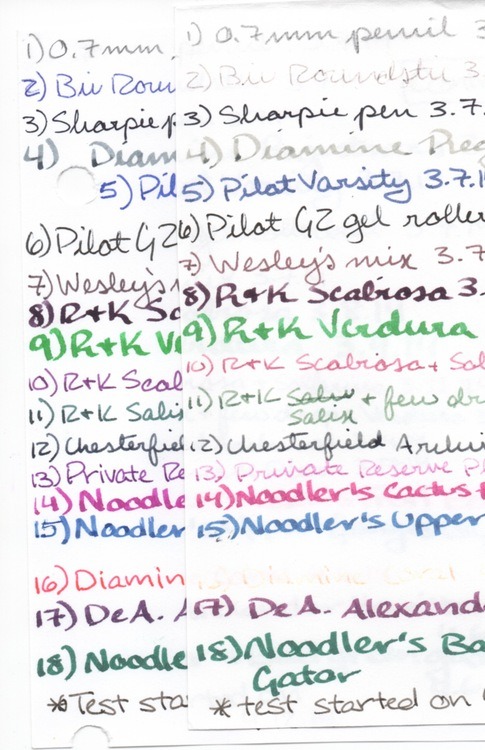 1) 0.7mm
2) Bic Roun
3) Sharpie p
4) Diam
5) Pil
6) Pilot G2
7) Wesley's
8) R+K Sc
9) R+K V
10) R+K Scab
11) R+K Salix
12) Chesterfiel
13) Private Re
14) Noodle
15) Noodler
16) Diamin
17) DeA. A
18) Noodle
* Test sta
1) 0.7mm pencil 3
2) Bic Roundstic 3.
3) Sharpie pen 3.7.
4) Diamine Reg
5) Pilot Varsity 3.7.1
6) Pilot G2 gel roller
7) Wesley's mix 3.7
8) R+K Scabiosa 3.
9) R+K Verdura
10) R+K Scabiosa + Sal
11) R+K Salix + few dr
Salix
12) Chesterfield Archi
13) Private Reserve Pl
14) Noodler's Cactus F
15) Noodler's Upper
16) Diamine Coral
17) DeA. Alexand
18) Noodler's Ba
Gator
* test started on